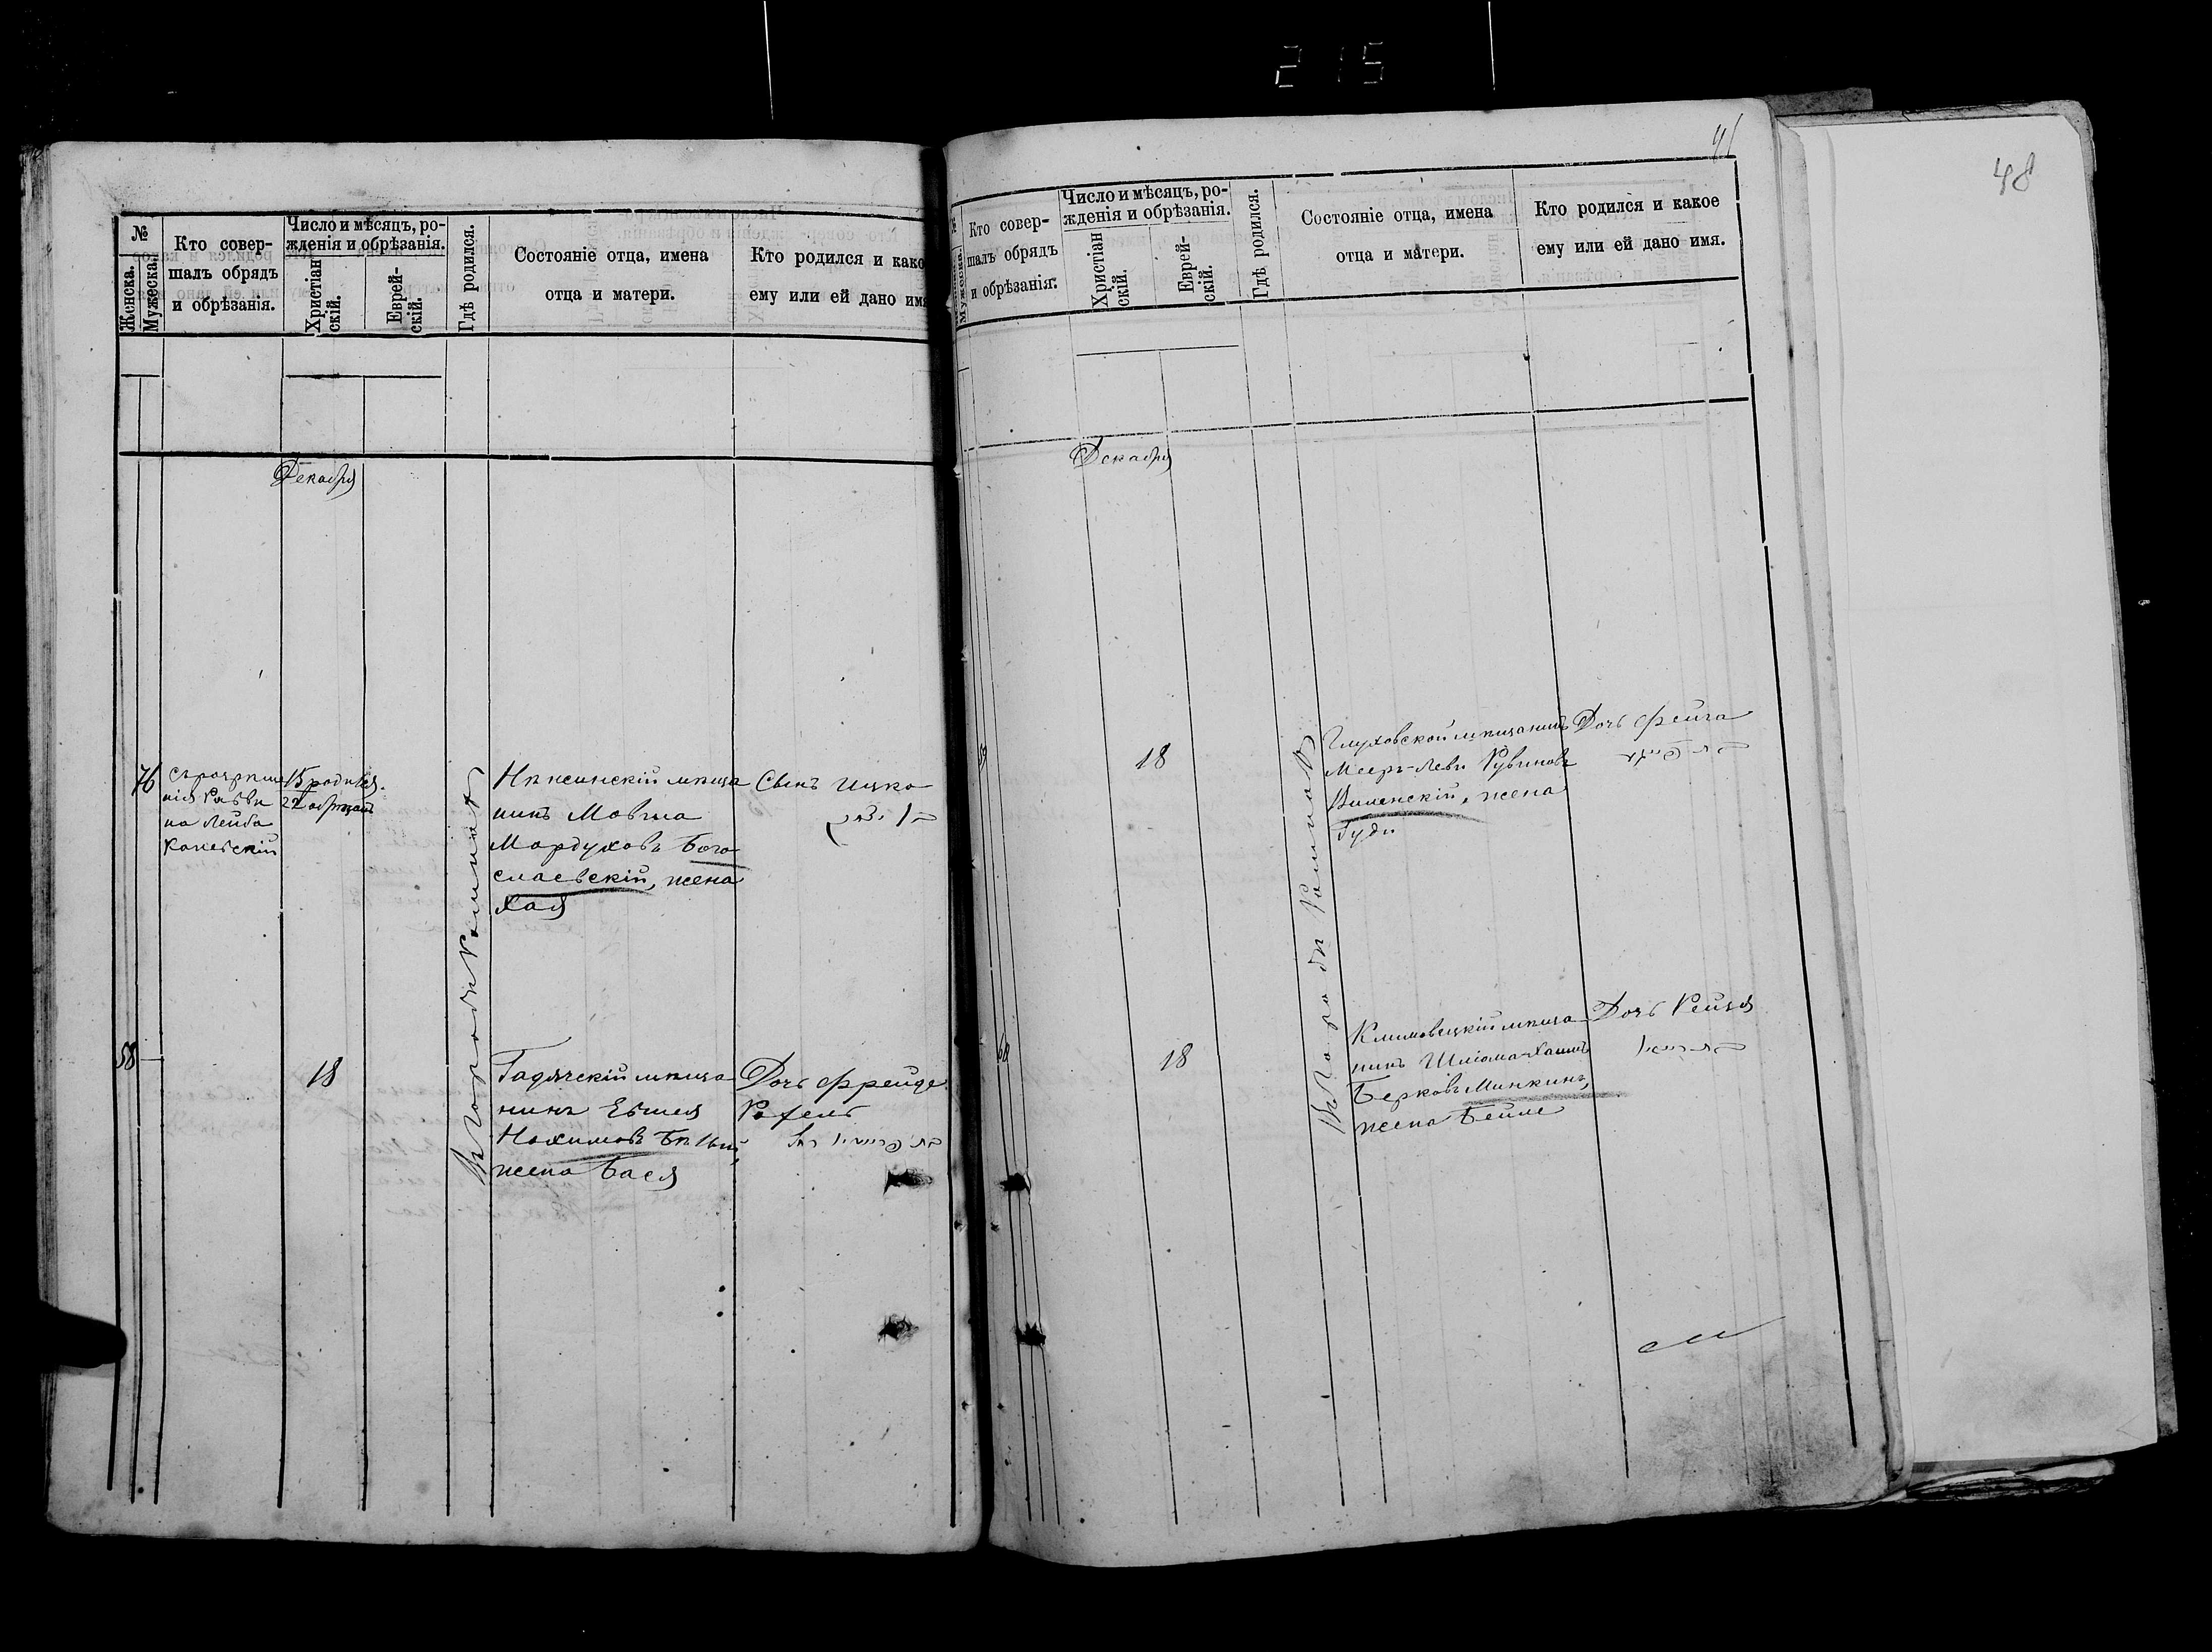 215
№
Женска.
Мужеска.
Кто совер-
шалъ обрядъ
и обрѣзанія.
Число и мѣсяцъ, ро-
жденія и обрѣзанія.
Христіан
скій.
Еврей-
скій.
Гдѣ родился.
Состояніе отца, имена
отца и матери.
Кто родился и како
ему или ей дано имя
Декабря
76
на Лейба
Каневскій
15 родился.
22 обрѣзанъ
Въ городѣ Ромнахъ
Нѣжинскій мѣща
нинъ Мовша
Мордуховъ Бого
славскій, жена
Хая
Сынъ Ицко
58
18
Гадячскій мѣща
нинъ Евшея
Нохимовъ
жена Бася
Дочь Фрейде
Рохель
41
Мужеска.
Кто совер-
шалъ обрядъ
и обрѣзанія.
Число и мѣсяцъ, ро-
жденія и обрѣзанія.
Христіан
скій.
Еврей-
скій.
Гдѣ родился.
Состояніе отца, имена
отца и матери.
Кто родился и какое
ему или ей дано имя.
Декабря
59
18
Въ городѣ Ромнахъ
Глуховской мѣщанинъ
Мееръ-Леви Рувиновъ
Виленскій, жена
Гуди
Дочь Фейга
60
18
Климовецкій мѣща
нинъ Шліома-Хаимъ
Берковъ Минкинъ,
жена Бейле
Дочь Рейзя
48